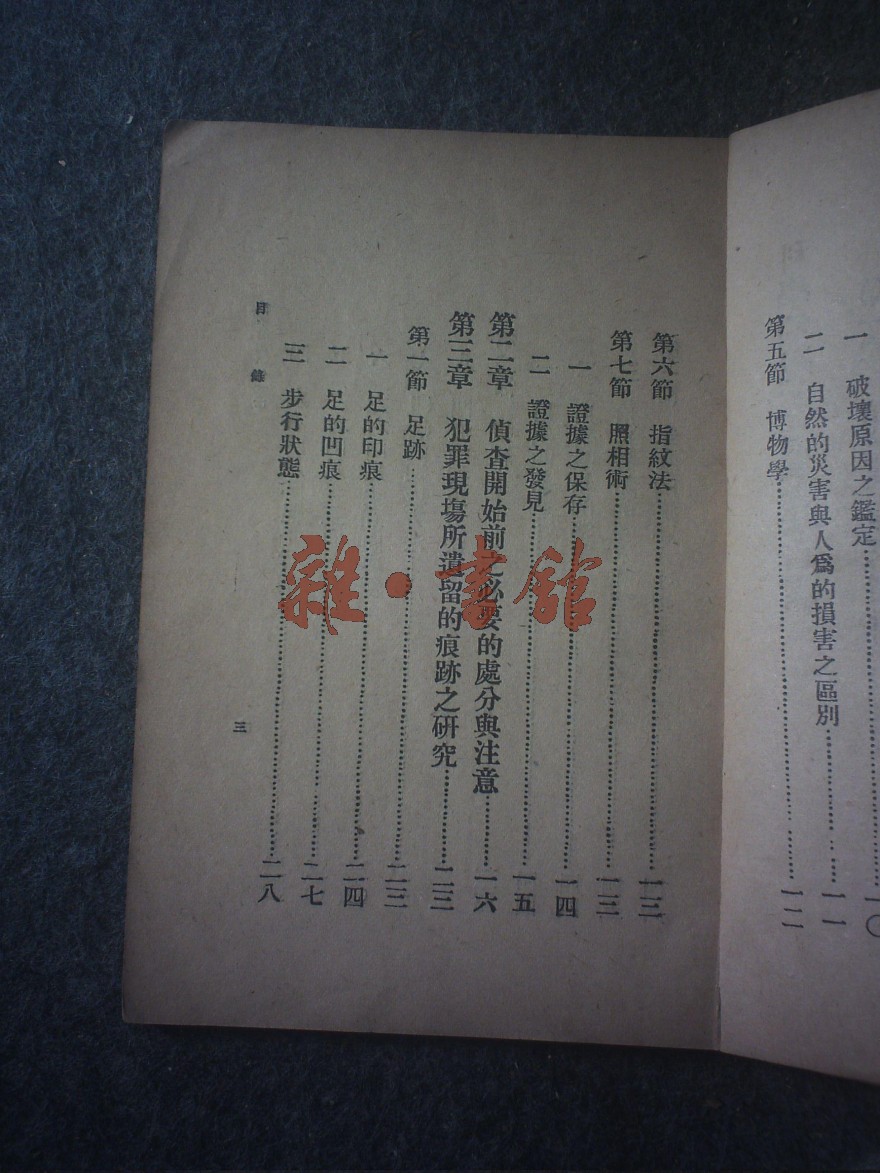 一　破壞原因之鑑定……一〇
二　自然的災害與人爲的損害之區別……一一
第五節　博物學……一二
第六節　指紋法……一三
第七節　照相術……一三
一　證據之保存……一四
二　證據之發見……一五
第二章　偵查開始前之必要的處分與注意……一六
第三章　犯罪現場所遺留的痕跡之研究……二三
第一節　足跡……二三
一　足的印痕……二四
二　足的凹痕……二七
三　步行狀態……二八
目錄
三
雜·書館